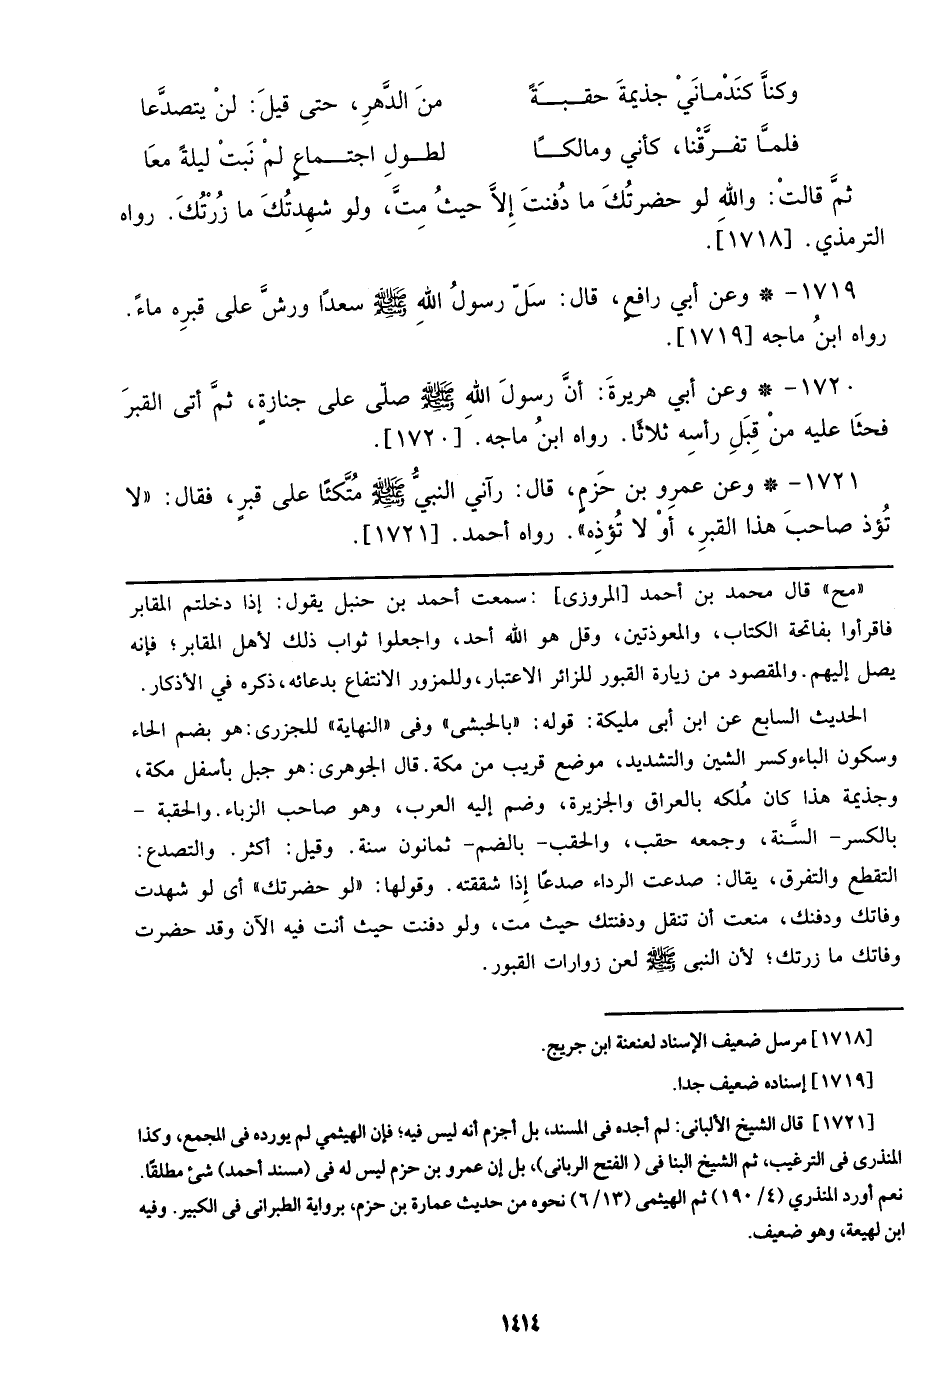 وكنَّا كنَدْمـانَيْ جذيمةَ حقـبـــةً منَ الدَّهرِ، حتى قيلَ: لنْ يتصدَّعا
فلمـَّا تفـرَّقْنا، كأني ومالكــًا لطـولِ اجتـــماعٍ لمْ نَبتْ ليلةً معَا
ثمَّ قالتْ: واللهِ لو حضرتُكَ ما دُفنتَ إلاَّ حيثُ مِتَّ، ولو شهدتُكَ ما زُرْتُكَ. رواه
الترمذي. [١٧١٨].
١٧١٩- * وعن أبي رافعٍ، قال: سَلّ رسولُ اللهِ ﷺ سعدًا ورشَّ على قبرِه ماءً.
رواه ابنُ ماجه [١٧١٩].
١٧٢٠- * وعن أبي هريرةَ: أنَّ رسولَ اللهِ ﷺ صلّى على جنازةٍ، ثمَّ أتى القبرَ
فحثَا عليه منْ قِبَلِ رأسِه ثلاثًا. رواه ابنُ ماجه. [١٧٢٠].
١٧٢١- * وعن عمرِو بن حَزمٍ، قال: رآني النبيُّ ﷺ مُتَّكئًا على قبرٍ، فقال: «لا
تُؤذ صاحبَ هذا القبرِ، أوْ لا تُؤذِه». رواه أحمد. [١٧٢١].
«مح» قال محمد بن أحمد [المروزى] :سمعت أحمد بن حنبل يقول: إذا دخلتم المقابر
فاقرأوا بفاتحة الكتاب، والمعوذتين، وقل هو الله أحد، واجعلوا ثواب ذلك لأهل المقابر؛ فإنه
يصل إليهم.والمقصود من زيارة القبور للزائر الاعتبار،وللمزور الانتفاع بدعائه،ذكره في الأذكار.
الحديث السابع عن ابن أبى مليكة: قوله: «بالحبشى» وفى «النهاية» للجزرى:هو بضم الحاء
وسكون الباءوكسر الشين والتشديد، موضع قريب من مكة.قال الجوهرى:هو جبل بأسفل مكة،
وجذيمة هذا كان مُلكه بالعراق والجزيرة، وضم إليه العرب، وهو صاحب الزباء.والحقبة -
بالكسر- السَّنة، وجمعه حقب، والحقب- بالضم- ثمانون سنة. وقيل: أكثر. والتصدع:
التقطع والتفرق، يقال: صدعت الرداء صدعًا إذا شققته. وقولها: «لو حضرتك» أى لو شهدت
وفاتك ودفنك، منعت أن تنقل ودفنتك حيث مت، ولو دفنت حيث أنت فيه الآن وقد حضرت
وفاتك ما زرتك؛ لأن النبى ﷺ لعن زوارات القبور.
[١٧١٨] مرسل ضعيف الإسناد لعنعنة ابن جريج.
[١٧١٩] إسناده ضعيف جدا.
[١٧٢١] قال الشيخ الألبانى: لم أجده فى المسند، بل أجزم أنه ليس فيه؛ فإن الهيثمي لم يورده فى المجمع، وكذا
المنذرى فى الترغيب، ثم الشيخ البنا فى ( الفتح الربانى)، بل إن عمرو بن حزم ليس له فى (مسند أحمد) شئ مطلقًا.
نعم أورد المنذري (٤/ ١٩٠) ثم الهيثمى (٦/١٣) نحوه من حديث عمارة بن حزم، برواية الطبرانى فى الكبير. وفيه
ابن لهيعة، وهو ضعيف.
١٤١٤